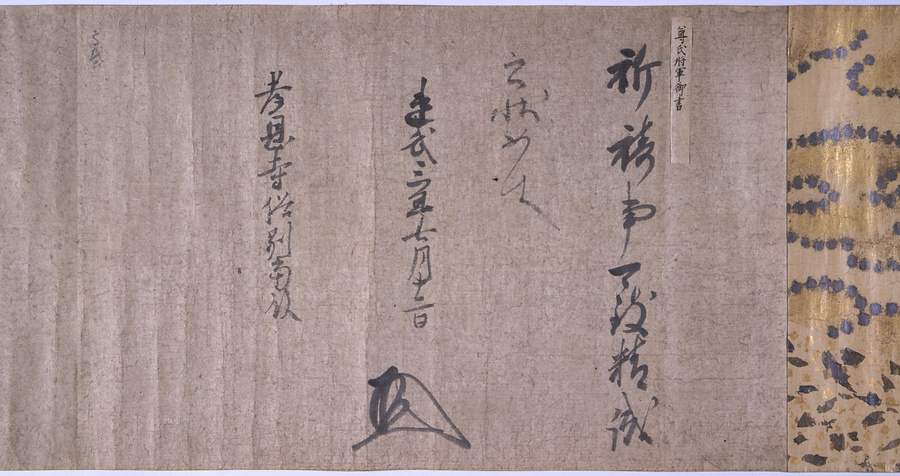 尊氏将軍御書
祈祷事可致精誠
之状如件
建武三年七月十二日
孝恩寺僧別当殿